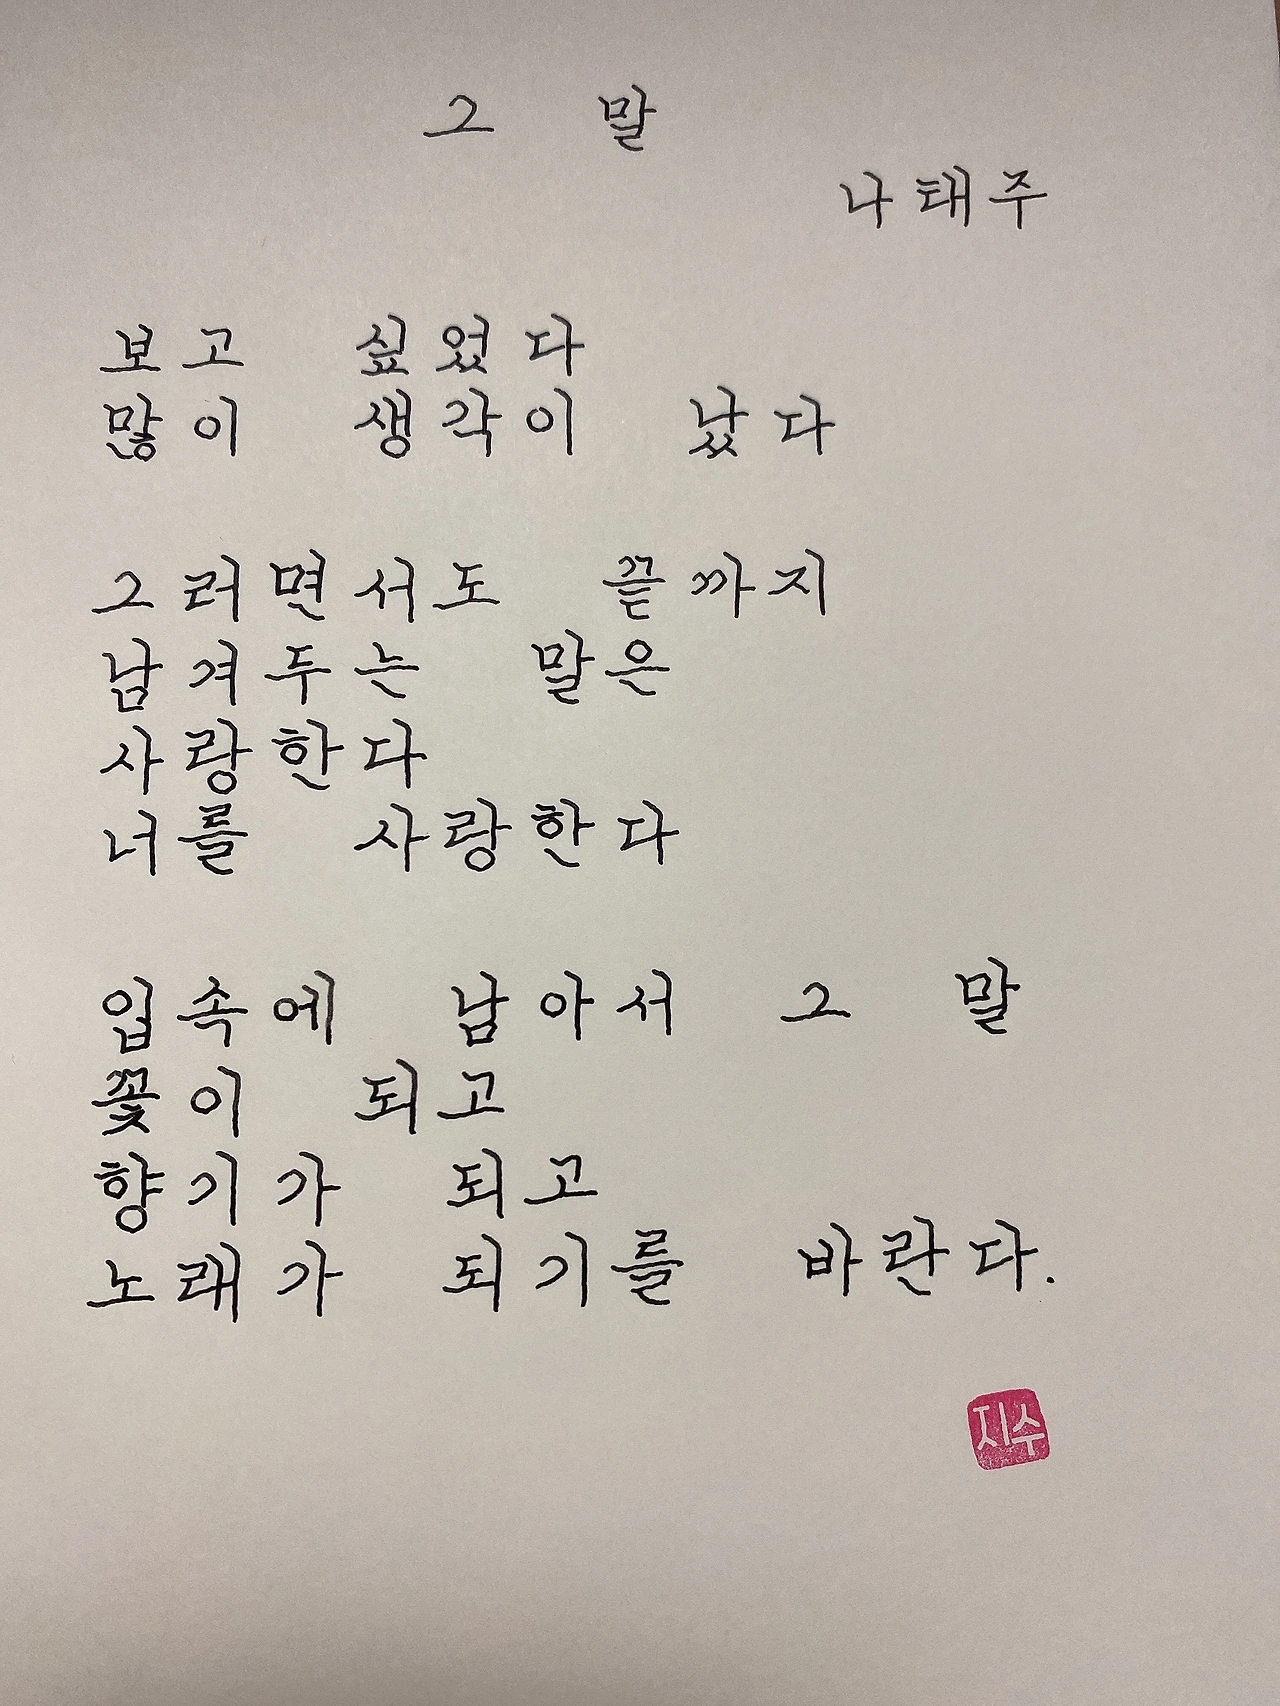 그 말
나태주
보고 싶었다
많이 생각이 났다
그러면서도 끝까지
남겨두는 말은
사랑한다
너를 사랑한다
입속에 남아서 그 말
꽃이 되고
향기가 되고
노래가 되기를 바란다.
지수